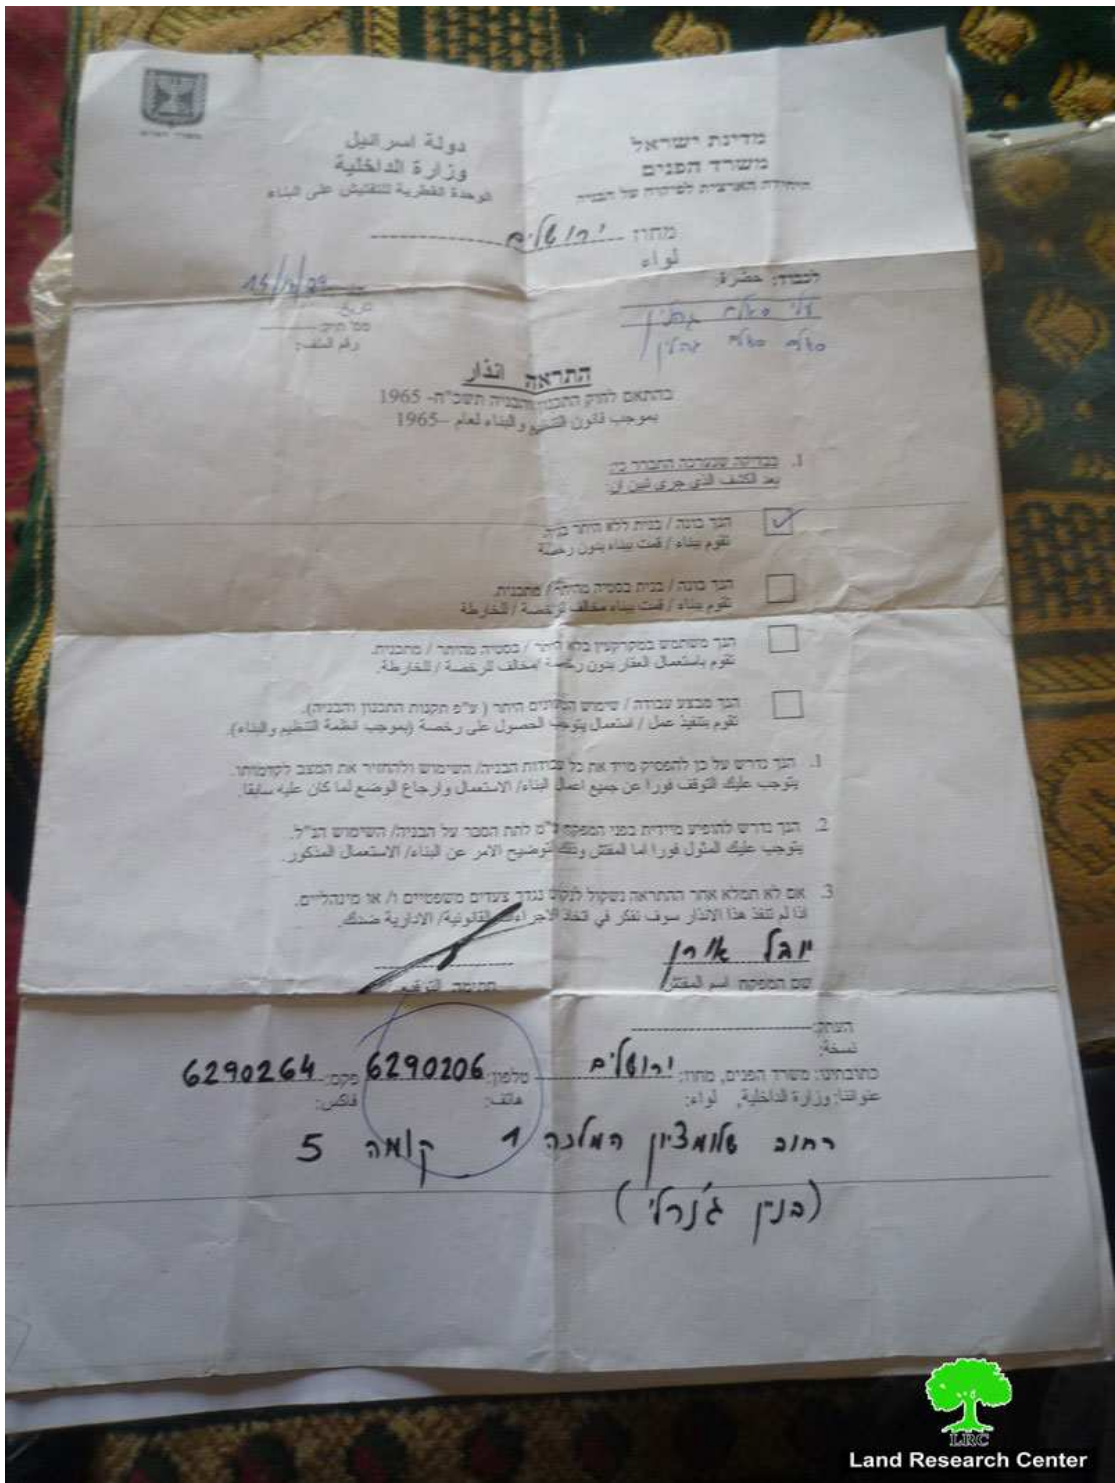 מדינת ישראל
משרד הפנים
היחידה הארצית לפיקוח על הבניה
دولة اسرائيل
وزارة الداخلية
الوحدة القطرية للتفتيش على البناء
מחוז ירושלים
لواء
לכבוד: حضرة:
סאלם סאלם
تاريخ:
מס' תיק:
رقم الملف:
התראה انذار
בהתאם לחוק התכנון והבניה תשכ"ה- 1965
بموجب قانون التنظيم والبناء لعام –1965
1. בבדיקה שנערכה התברר כי:
بعد الكشف الذي جرى تبين ان:
הנך בונה / בנית ללא היתר בניה.
تقوم ببناء / قمت ببناء بدون رخصة
הנך בונה / בנית בסטיה מהיתר / מתכנית.
تقوم ببناء / قمت ببناء مخالف للرخصة / للخارطة
הנך משתמש במקרקעין בלא היתר / בסטיה מהיתר / מתכנית.
تقوم باستعمال العقار بدون رخصة /مخالف للرخصة / للخارطة.
הנך מבצע עבודה / שימוש הטעונים היתר ( ע"פ תקנות התכנון והבניה).
تقوم بتنفيذ عمل / استعمال يتوجب الحصول على رخصة (بموجب انظمة التنظيم والبناء).
1. הנך נדרש על כן להפסיק מייד את כל עבודות הבניה/ השימוש ולהחזיר את המצב לקדמותו.
يتوجب عليك التوقف فورا عن جميع اعمال البناء/ الاستعمال وارجاع الوضع لما كان عليه سابقا.
2. הנך נדרש להופיע מיידית בפני המפקח הח"מ לתת הסבר על הבניה/ השימוש הנ"ל.
يتوجب عليك المثول فورا اما المفتش وذلك لتوضيح الامر عن البناء/ الاستعمال المذكور.
3. אם לא תמלא אחר ההתראה נשקול לנקוט נגדך צעדים משפטיים ו/ או מינהליים.
اذا لم تنفذ هذا الانذار سوف نفكر في اتخاذ الاجراءات القانونية/ الادارية ضدك.
יובל אורן
שם המפקח اسم المفتش
חתימה التوقيع
העתק:
نسخة:
כתובתינו: משרד הפנים, מחוז: ירושלים טלפון: 6290206 פקס: 6290264
عنواننا: وزارة الداخلية, لواء: هاتف: فاكس:
רחוב שלומציון המלכה 1 קומה 5
(בנין ג'נרלי)
LRC
Land Research Center